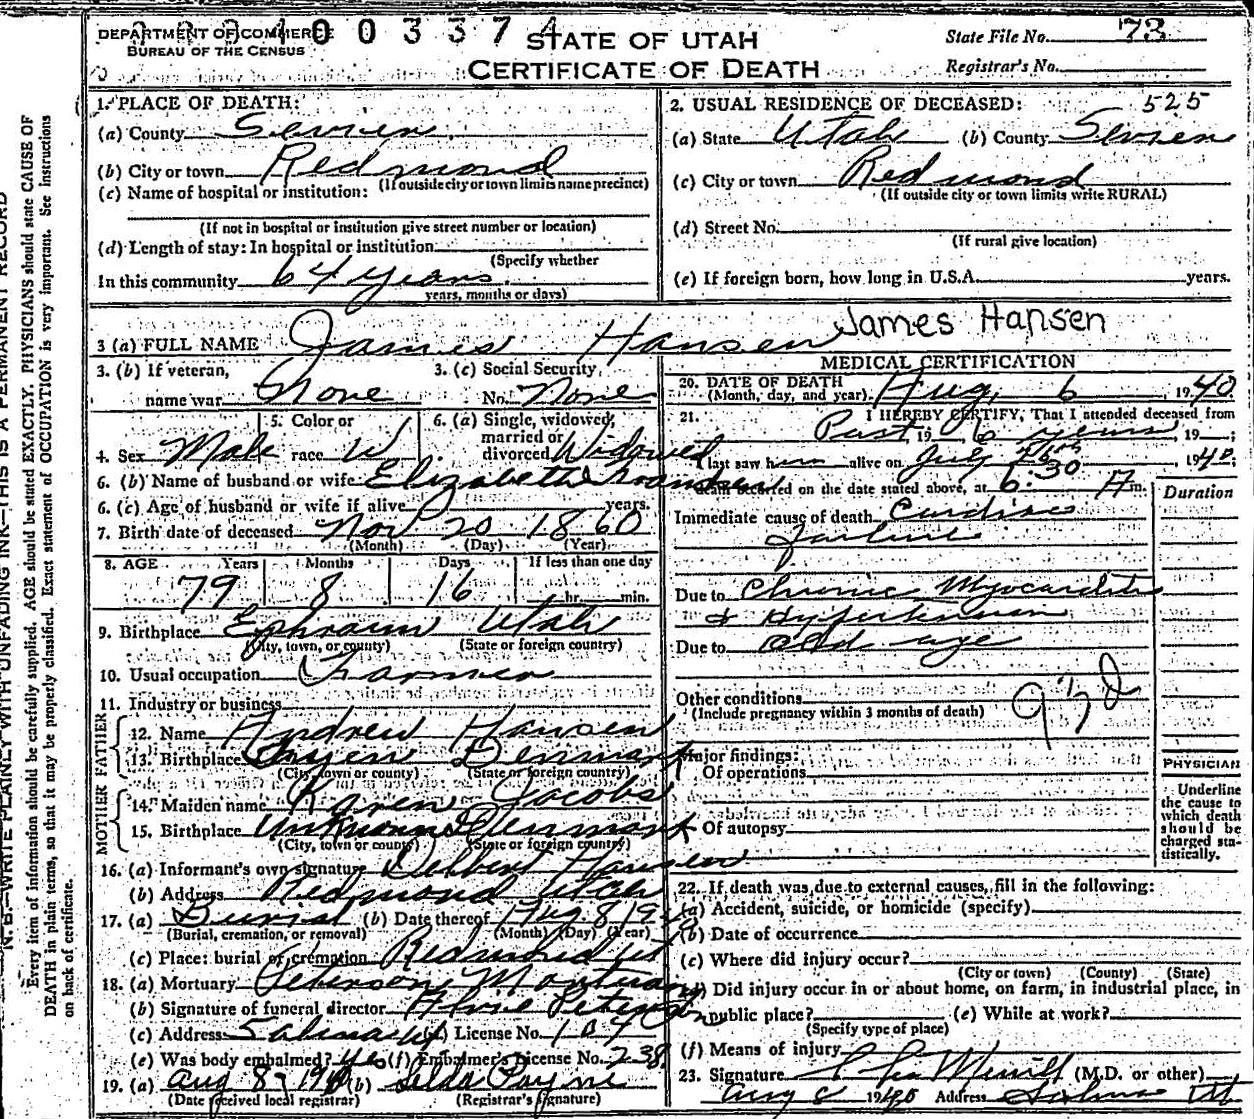 DEPARTMENT OF COMMERCE
BUREAU OF THE CENSUS
1003374
STATE OF UTAH
CERTIFICATE OF DEATH
State File No. 73
Registrar's No.
525
N. B.—WRITE PLAINLY WITH UNFADING INK—THIS IS A PERMANENT RECORD
Every item of information should be carefully supplied. AGE should be stated EXACTLY. PHYSICIANS should state CAUSE OF
DEATH in plain terms, so that it may be properly classified. Exact statement of OCCUPATION is very important. See Instructions
on back of certificate.
1. PLACE OF DEATH:
(a) County Sevier
(b) City or town Redmond
(If outside city or town limits name precinct)
(c) Name of hospital or institution:
(If not in hospital or institution give street number or location)
(d) Length of stay: In hospital or institution
(Specify whether
In this community 64 years
years, months or days)
2. USUAL RESIDENCE OF DECEASED:
(a) State Utah (b) County Sevier
(c) City or town Redmond
(If outside city or town limits write RURAL)
(d) Street No.
(If rural give location)
(e) If foreign born, how long in U.S.A. years.
3 (a) FULL NAME James Hansen
James Hansen
3. (b) If veteran, name war None
3. (c) Social Security No. None
4. Sex Male
5. Color or race W
6. (a) Single, widowed, married or divorced Widowed
6. (b) Name of husband or wife Elizabeth
6. (c) Age of husband or wife if alive years.
7. Birth date of deceased Nov 20 1860
(Month) (Day) (Year)
8. AGE Years Months Days If less than one day
79 8 16 hr. min.
9. Birthplace Ephraim Utah
(City, town, or county) (State or foreign country)
10. Usual occupation Farmer
11. Industry or business
FATHER
12. Name Andrew Hansen
13. Birthplace Denmark
(City, town or county) (State or foreign country)
MOTHER
14. Maiden name Karen Jacobs
15. Birthplace Unknown Denmark
(City, town or county) (State or foreign country)
16. (a) Informant's own signature Delbert Hansen
(b) Address Redmond Utah
17. (a) Burial (b) Date thereof Aug 8 1940
(Burial, cremation, or removal) (Month) (Day) (Year)
(c) Place: burial or cremation Redmond Ut
18. (a) Mortuary Peterson Mortuary
(b) Signature of funeral director Peterson
(c) Address Salina Ut (d) License No. 104
(e) Was body embalmed? yes (f) Embalmer's License No. 238
19. (a) Aug 8 - 1940 (b) Selda Payne
(Date received local registrar) (Registrar's signature)
MEDICAL CERTIFICATION
20. DATE OF DEATH
(Month, day, and year) Aug, 6, 1940
21. I HEREBY CERTIFY, That I attended deceased from
Past 19 6 years, 19 ;
I last saw him alive on July, 1940,
death occurred on the date stated above, at 6:30 A m.
Duration
Immediate cause of death Cardiac
failure
Due to Chronic Myocarditis
& Hypertension
Due to old age
Other conditions
(Include pregnancy within 3 months of death)
Major findings:
Of operations
Of autopsy
PHYSICIAN
Underline
the cause to
which death
should be
charged sta-
tistically.
22. If death was due to external causes, fill in the following:
(a) Accident, suicide, or homicide (specify)
(b) Date of occurrence
(c) Where did injury occur?
(City or town) (County) (State)
(d) Did injury occur in or about home, on farm, in industrial place, in
public place? (e) While at work?
(Specify type of place)
(f) Means of injury
23. Signature Merrill (M.D. or other)
Aug 1940 Address Salina Ut